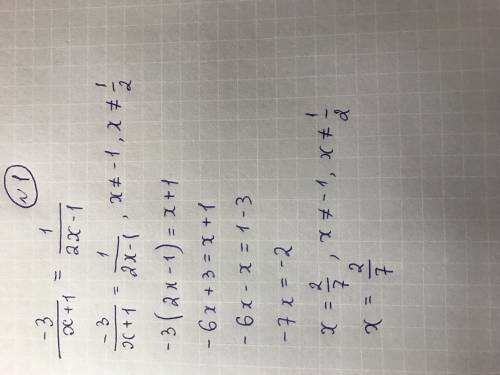 №1
-3/(x+1) = 1/(2x-1)
-3/(x+1) = 1/(2x-1), x ≠ -1, x ≠ 1/2
-3(2x-1) = x+1
-6x+3 = x+1
-6x-x = 1-3
-7x = -2
x = 2/7, x ≠ -1, x ≠ 1/2
x = 2/7